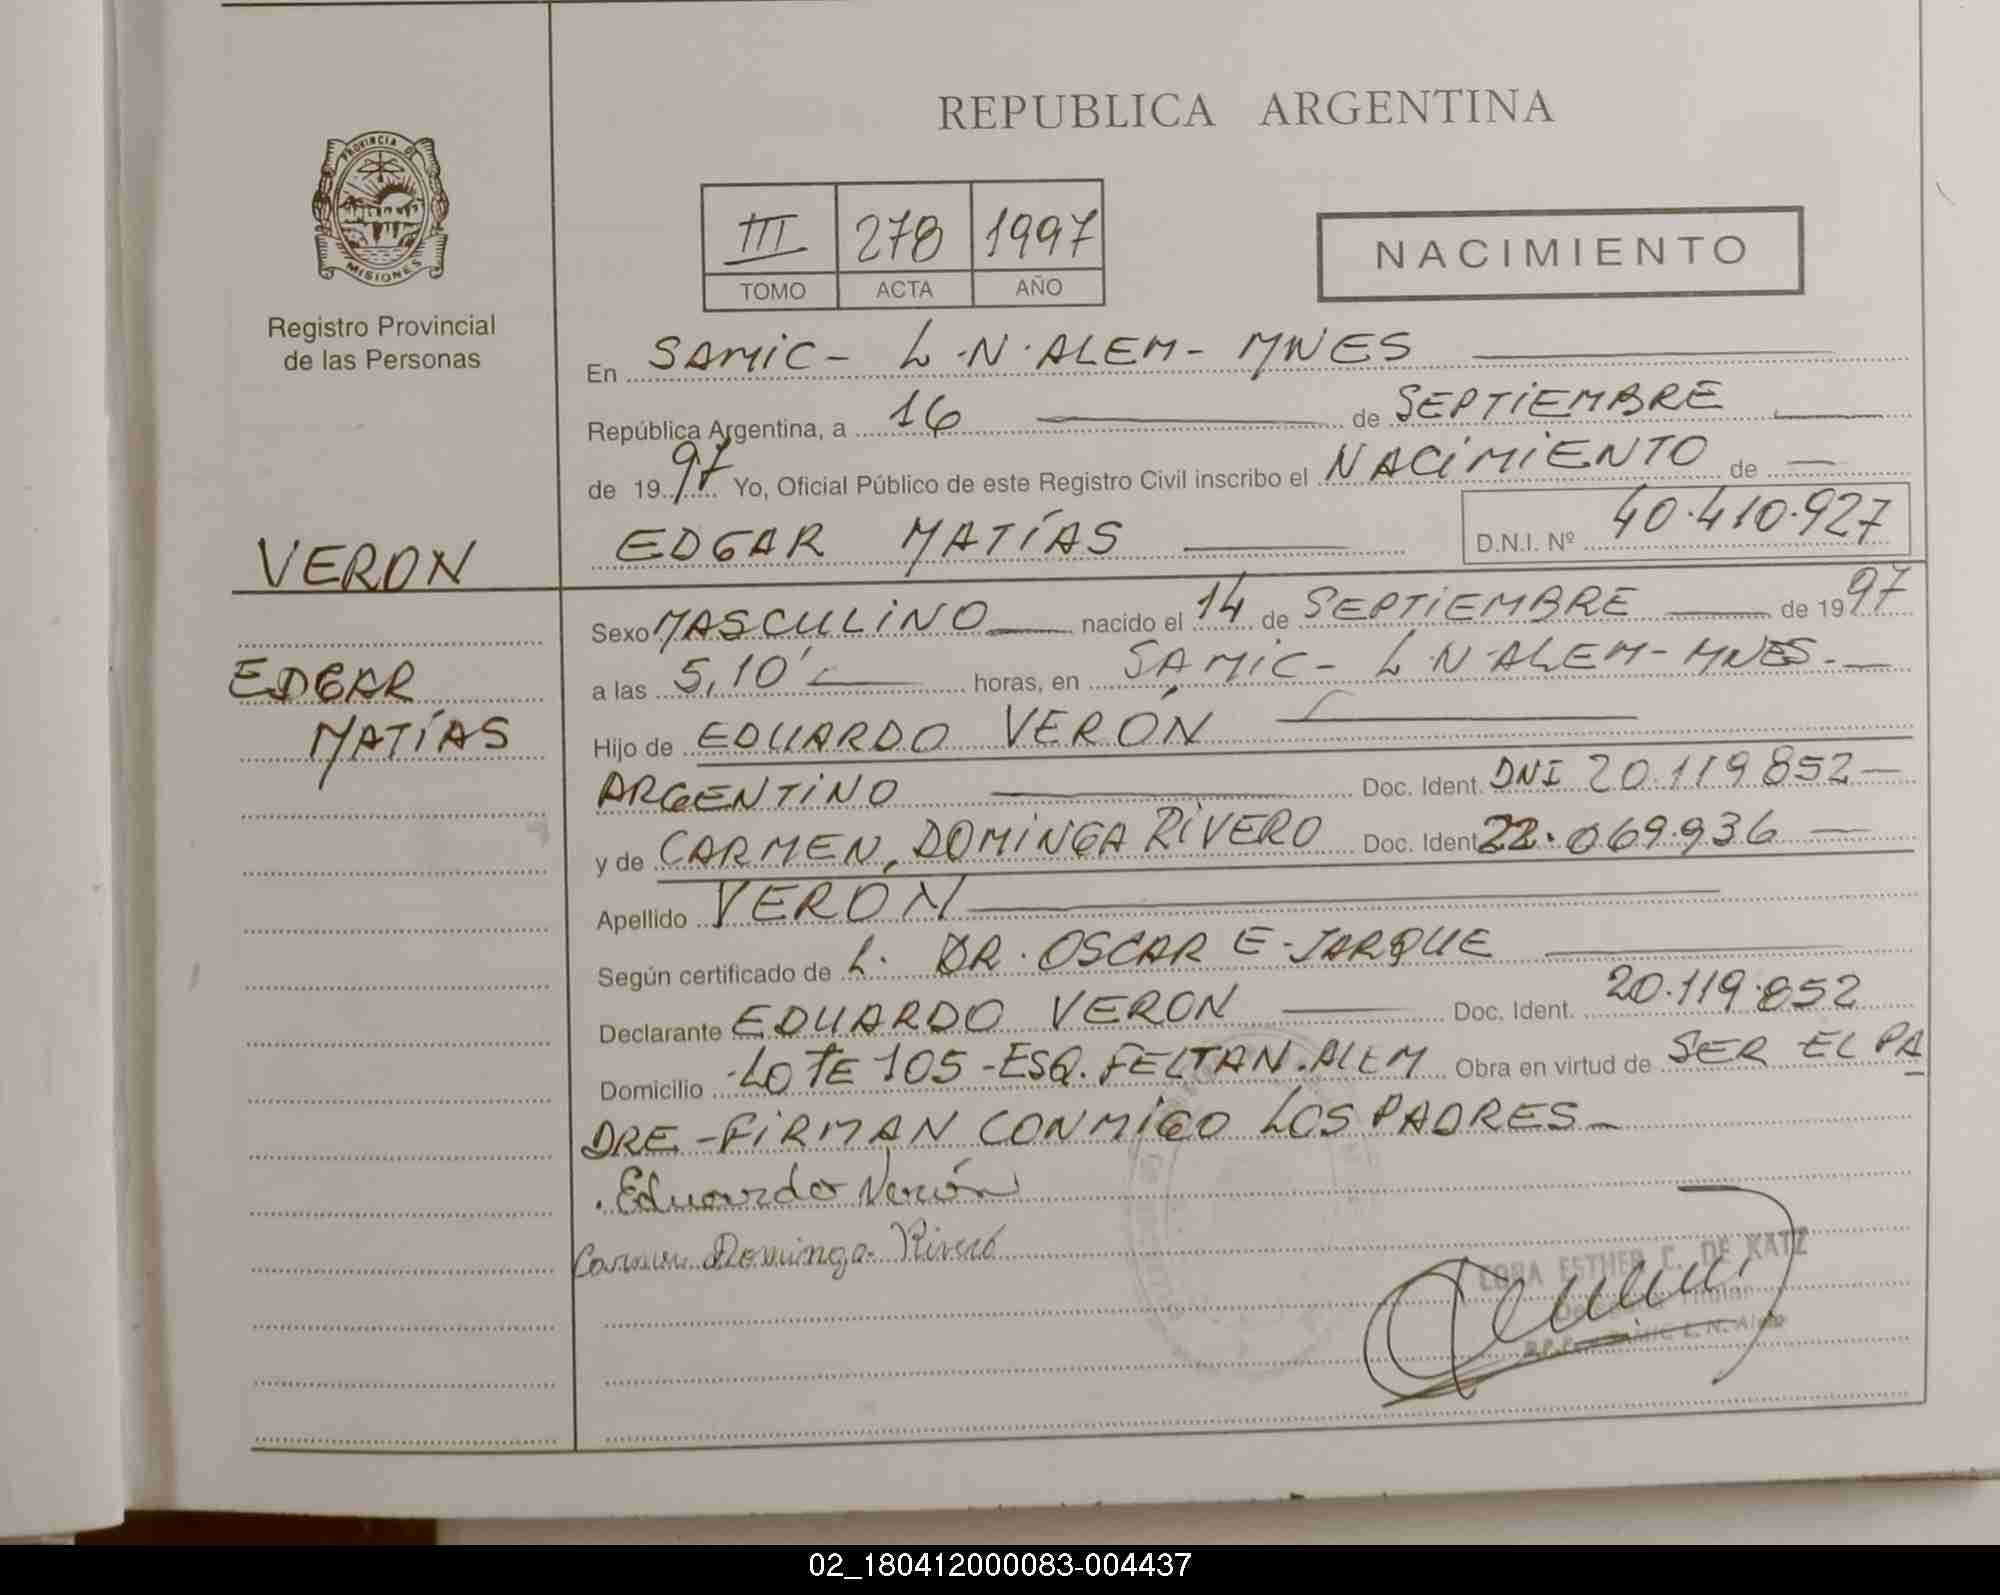 REPUBLICA ARGENTINA
PROVINCIA DE
MISIONES
Registro Provincial
de las Personas
III 278 1997
TOMO ACTA AÑO
NACIMIENTO
En SAMIC - L.N.ALEM - MNES
República Argentina, a 16 de SEPTIEMBRE
de 1997 Yo, Oficial Público de este Registro Civil inscribo el NACIMIENTO de —
VERON
EDGAR MATÍAS D.N.I. Nº 40.410.927
Sexo MASCULINO nacido el 14 de SEPTIEMBRE de 1997
EDGAR
a las 5,10' horas, en SAMIC - L.N.ALEM - MNES.
MATÍAS
Hijo de EDUARDO VERÓN
ARGENTINO Doc. Ident. DNI 20.119.852 —
y de CARMEN, DOMINGA RIVERO Doc. Ident 22.069.936 —
Apellido VERÓN
Según certificado de L. DR. OSCAR E. JARQUE
Declarante EDUARDO VERON Doc. Ident. 20.119.852
Domicilio LOTE 105 - ESQ. FELTAN. ALEM Obra en virtud de SER EL PA
DRE - FIRMAN CONMIGO LOS PADRES
Eduardo Verón
Carmen Dominga Rivero
ESTHER C. DE KATZ
Titular
SAMIC L. N. Alem
02_180412000083-004437